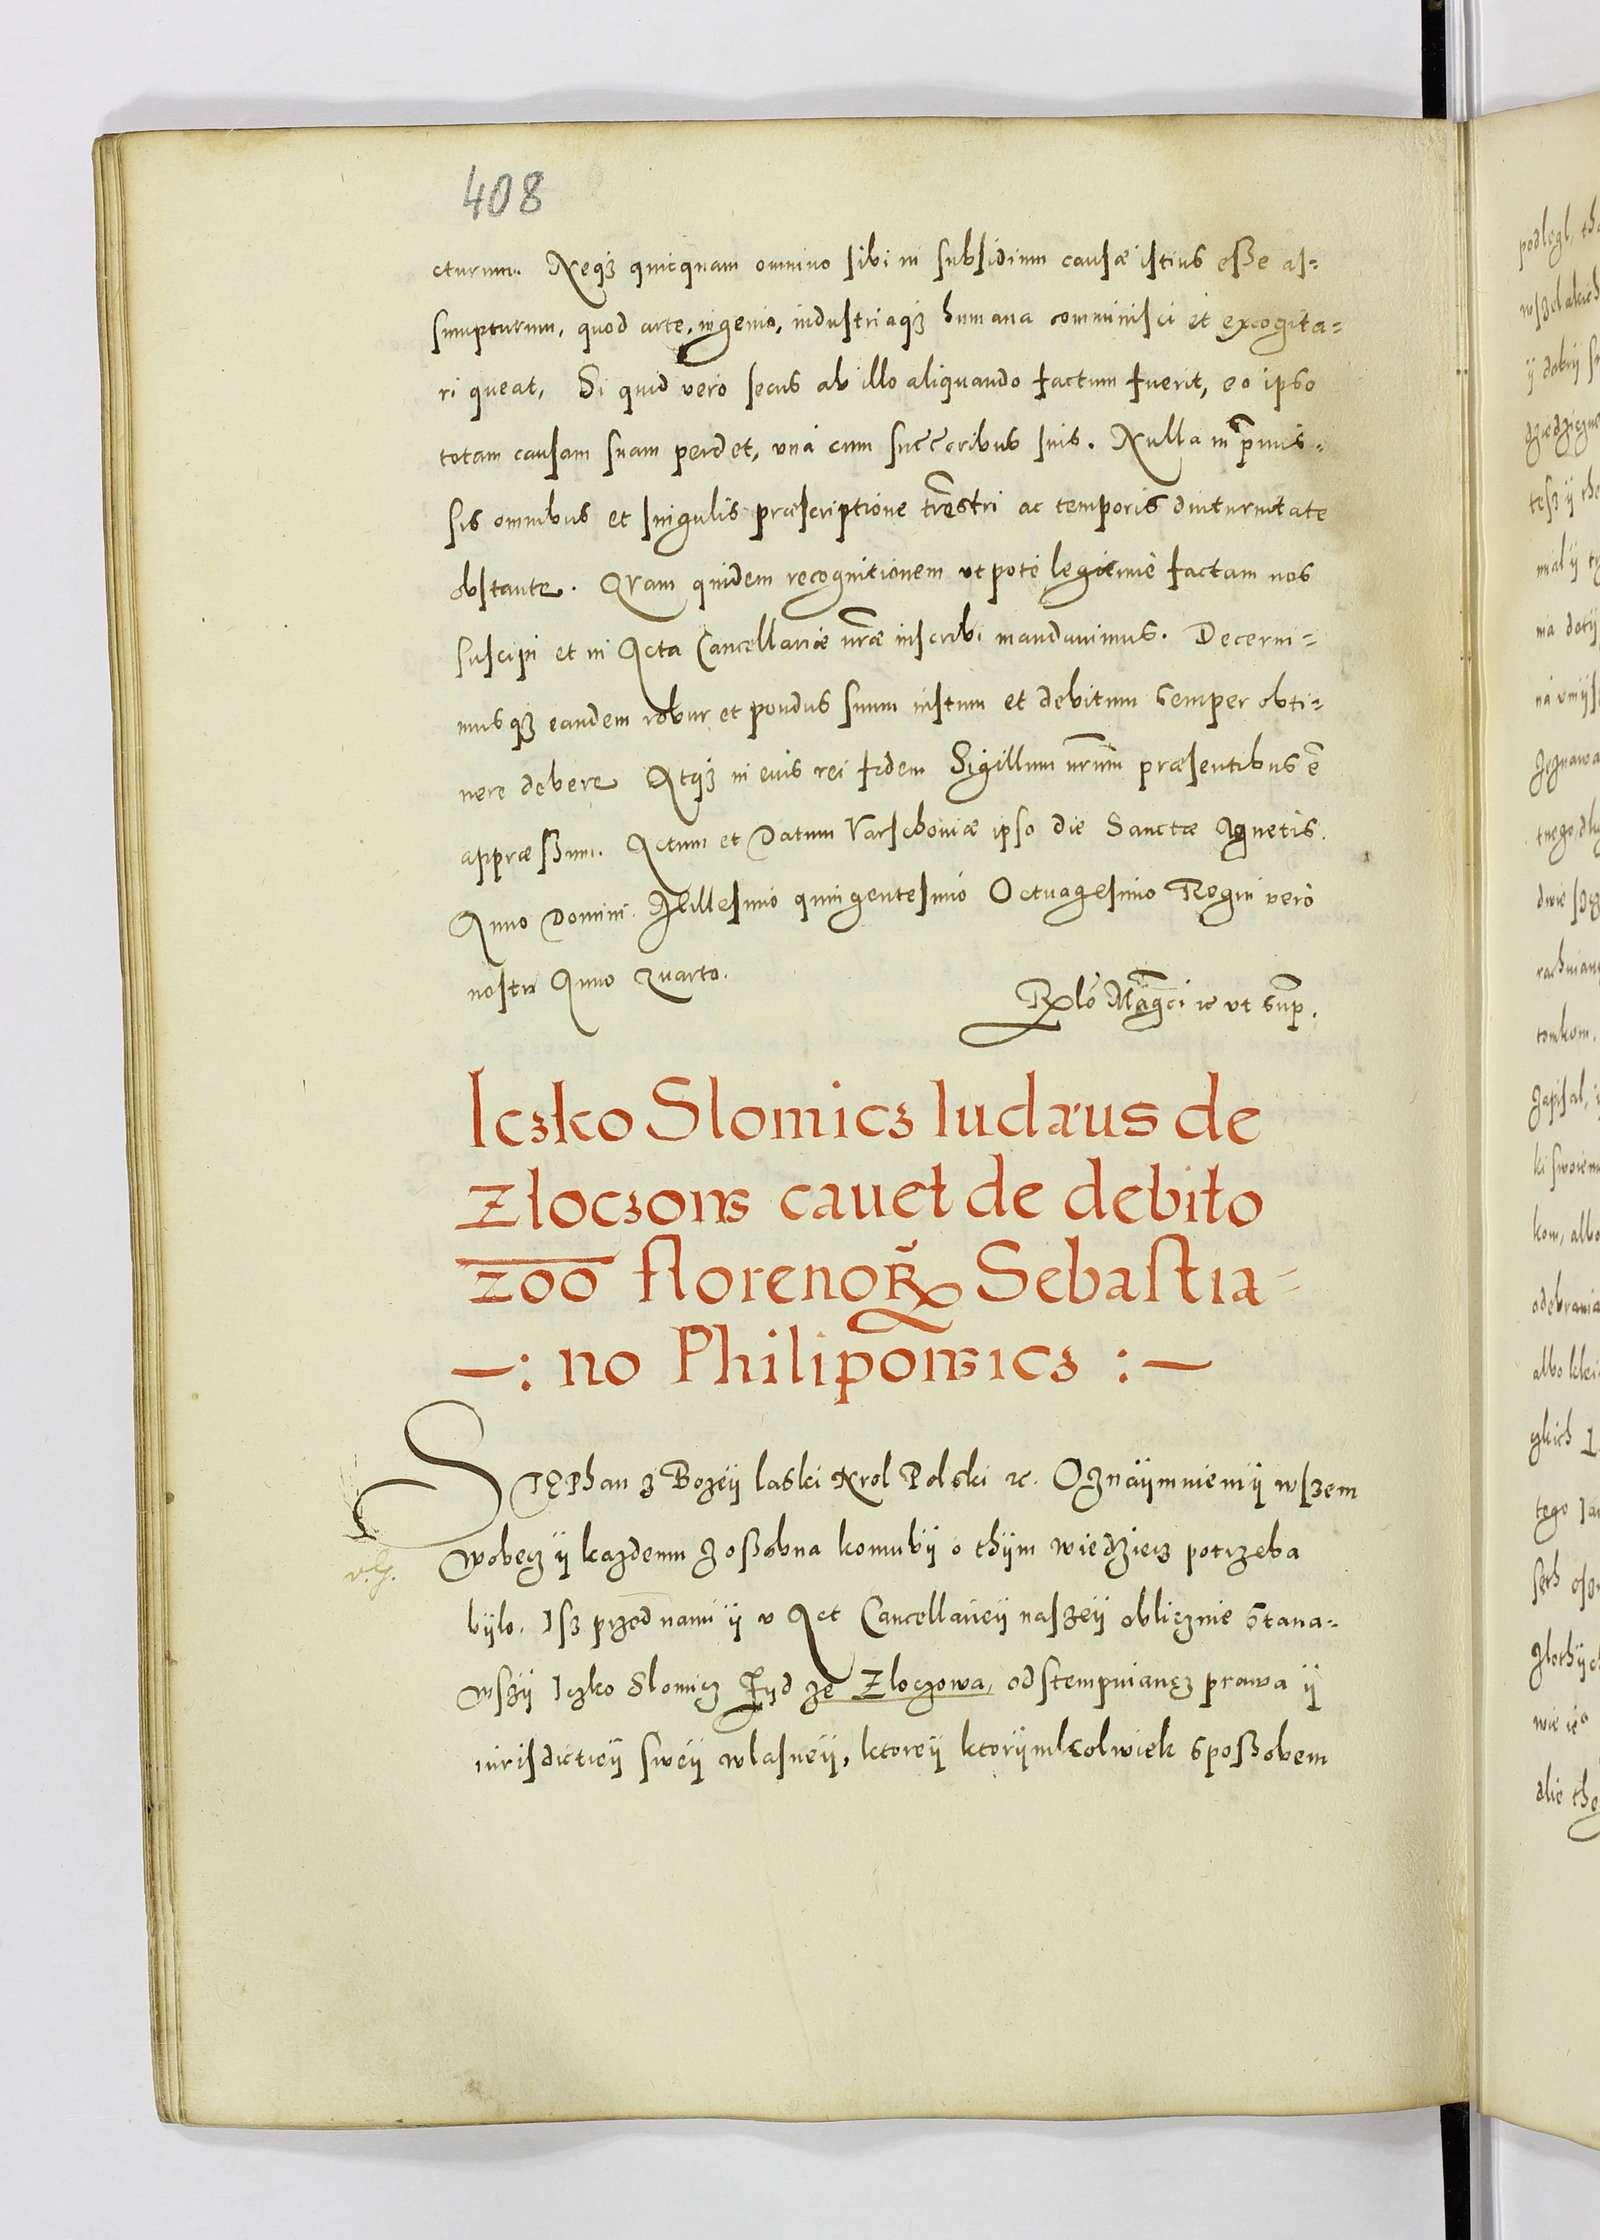 408
cturum. Neqз quicquam omnino sibi in subsidium causæ istius esse as=
sumpturum, quod arte, ingenio, industriaqз humana comminisci et excogita=
ri queat, Si quid vero secus ab illo aliquando factum fuerit, eo ipso
totam causam suam perdet, vná cum succoribus suis. Nulla in p̄mis=
sis omnibus et singulis præscriptione tr̄estri ac temporis diuturnitate
obstante. QVam quidem recognitionem vtpote legitimè factam nos
suscipi et in Acta Cancellariæ nr̄æ inscribi mandauimus. Decerni=
musqз eandem robur et pondus suum iustum et debitum semper obti=
nere debere Atqз in eius rei fidem Sigillum nr̄um præsentibus ē
appræssum. Actum et Datum Varschouiæ ipso die Sanctæ Agnetis.
Anno Domini. Millesimo quingentesimo Octuagesimo Regni verò
nostri Anno Quarto.
Rlō Mag̃ci ꝛc vt sup.
Iczko Slomicz Iudæus de
Zloczow cauet de debito
200 florenoꝝ Sebastia=
—: no Philipowicz :—
STĘPhan z Bozÿ laski Krol Polski ꝛc. Oznaÿmniemÿ wszem
wobecz ÿ kazdemu zossobna komubÿ o thÿm wiedziecz potrzeba
bÿlo. Isz przed nami ÿ v Act Cancellarieÿ naszeÿ oblicznie stana=
wszÿ Iczko Slomicz Zyd ze Zloczowa, odstempuiancz prawa ÿ
iurisdictieÿ sweÿ wlasneÿ, ktoreÿ ktorÿmkolwiek sposobem